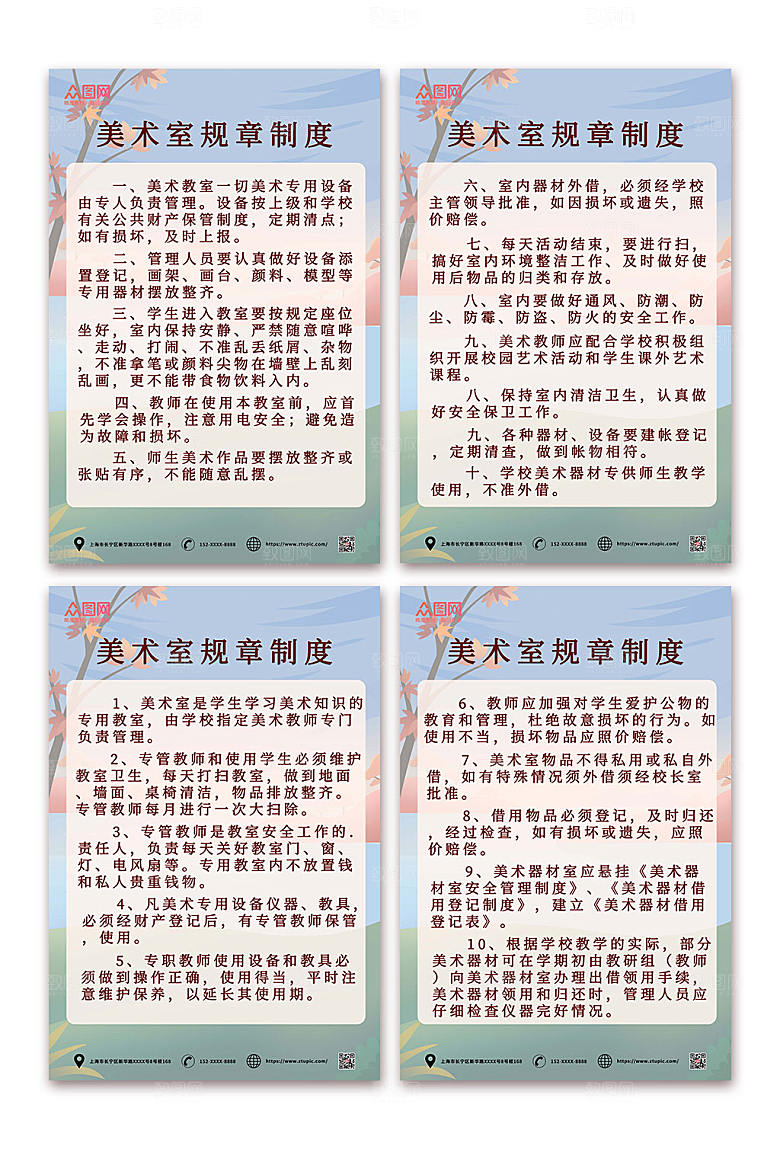 众图网
美术室规章制度
一、美术教室一切美术专用设备
由专人负责管理。设备按上级和学校
有关公共财产保管制度，定期清点；
如有损坏，及时上报。
二、管理人员要认真做好设备添
置登记，画架、画台、颜料、模型等
专用器材摆放整齐。
三、学生进入教室要按规定座位
坐好，室内保持安静、严禁随意喧哗
、走动、打闹、不准乱丢纸屑、杂物
，不准拿笔或颜料尖物在墙壁上乱刻
乱画，更不能带食物饮料入内。
四、教师在使用本教室前，应首
先学会操作，注意用电安全；避免造
为故障和损坏。
五、师生美术作品要摆放整齐或
张贴有序，不能随意乱摆。
上海市长宁区新华路XXXX号8号楼168
152-XXXX-8888
https://www.ztupic.com/
众图网
美术室规章制度
六、室内器材外借，必须经学校
主管领导批准，如因损坏或遗失，照
价赔偿。
七、每天活动结束，要进行扫，
搞好室内环境整洁工作、及时做好使
用后物品的归类和存放。
八、室内要做好通风、防潮、防
尘、防霉、防盗、防火的安全工作。
九、美术教师应配合学校积极组
织开展校园艺术活动和学生课外艺术
课程。
八、保持室内清洁卫生，认真做
好安全保卫工作。
九、各种器材、设备要建帐登记
，定期清查，做到帐物相符。
十、学校美术器材专供师生教学
使用，不准外借。
上海市长宁区新华路XXXX号8号楼168
152-XXXX-8888
https://www.ztupic.com/
众图网
美术室规章制度
1、美术室是学生学习美术知识的
专用教室，由学校指定美术教师专门
负责管理。
2、专管教师和使用学生必须维护
教室卫生，每天打扫教室，做到地面
、墙面、桌椅清洁，物品排放整齐。
专管教师每月进行一次大扫除。
3、专管教师是教室安全工作的.
责任人，负责每天关好教室门、窗、
灯、电风扇等。专用教室内不放置钱
和私人贵重钱物。
4、凡美术专用设备仪器、教具，
必须经财产登记后，有专管教师保管
，使用。
5、专职教师使用设备和教具必
须做到操作正确，使用得当，平时注
意维护保养，以延长其使用期。
上海市长宁区新华路XXXX号8号楼168
152-XXXX-8888
https://www.ztupic.com/
众图网
美术室规章制度
6、教师应加强对学生爱护公物的
教育和管理，杜绝故意损坏的行为。如
使用不当，损坏物品应照价赔偿。
7、美术室物品不得私用或私自外
借，如有特殊情况须外借须经校长室
批准。
8、借用物品必须登记，及时归还
，经过检查，如有损坏或遗失，应照
价赔偿。
9、美术器材室应悬挂《美术器
材室安全管理制度》、《美术器材借
用登记制度》，建立《美术器材借用
登记表》。
10、根据学校教学的实际，部分
美术器材可在学期初由教研组（教师
）向美术器材室办理出借领用手续，
美术器材领用和归还时，管理人员应
仔细检查仪器完好情况。
上海市长宁区新华路XXXX号8号楼168
152-XXXX-8888
https://www.ztupic.com/